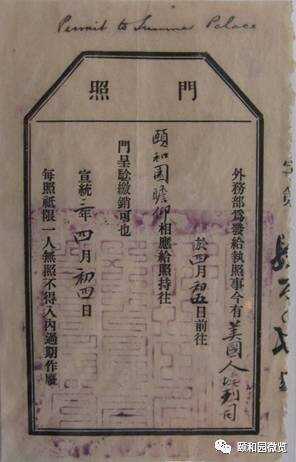 Permit to Summer Palace
門照
外務部爲發給執照事今有美國人
於四月初五日前往
頤和園瞻仰相應給照持往
門呈驗繳銷可也
宣統三年四月初四日
每照祇限一人無照不得入內過期作廢
颐和园微览